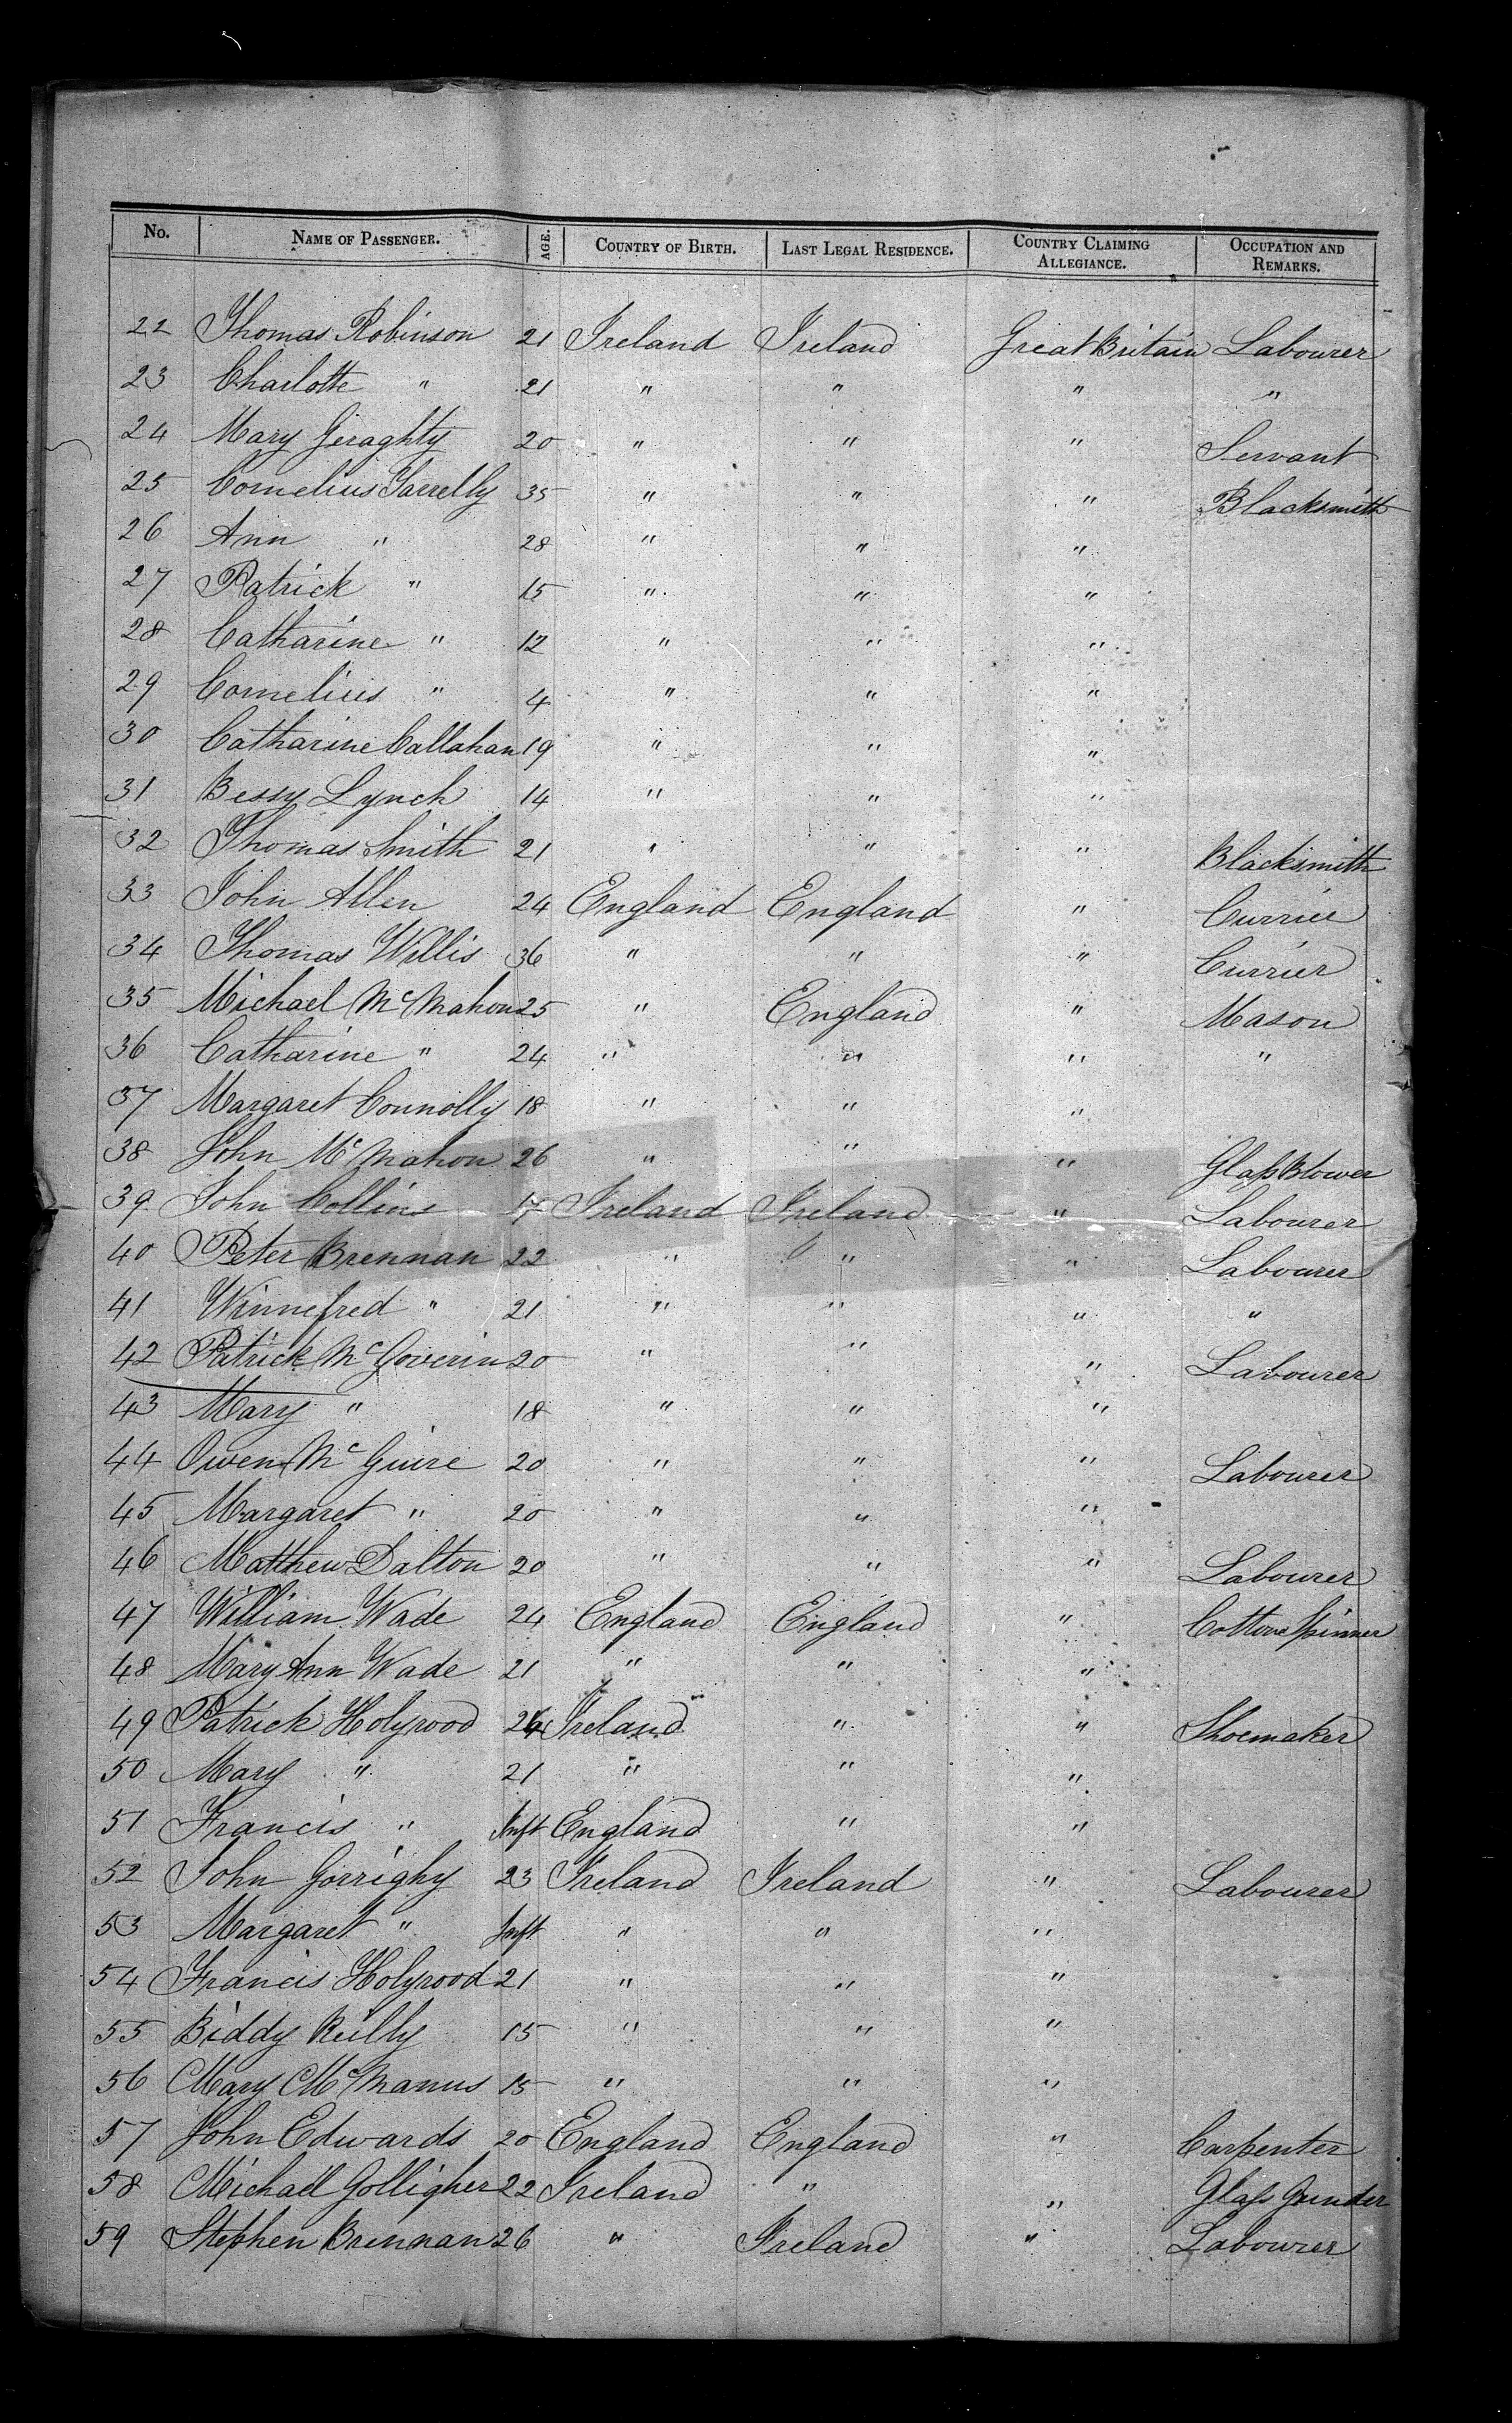 No. NAME OF PASSENGER. AGE. COUNTRY OF BIRTH. LAST LEGAL RESIDENCE. COUNTRY CLAIMING ALLEGIANCE. OCCUPATION AND REMARKS.
22 Thomas Robinson 21 Ireland Ireland Great Britain Labourer
23 Charlotte " 21 " " " "
24 Mary Geraghty 20 " " " Servant
25 Cornelius Farrelly 35 " " " Blacksmith
26 Ann " 28 " " "
27 Patrick " 15 " " "
28 Catharine " 12 " " "
29 Cornelius " 4 " " "
30 Catharine Callahan 19 " " "
31 Bessy Lynch 14 " " "
32 Thomas Smith 21 " " " Blacksmith
33 John Allen 24 England England " Currier
34 Thomas Willis 36 " " " Currier
35 Michael McMahon 25 " England " Mason
36 Catharine " 24 " " " "
37 Margaret Connolly 18 " " "
38 John McMahon 26 " " " Glass Blower
39 John Collins 17 Ireland Ireland " Labourer
40 Peter Brennan 22 " " " Labourer
41 Winnefred " 21 " " " "
42 Patrick McGoverin 20 " " " Labourer
43 Mary " 18 " " "
44 Owen McGuire 20 " " " Labourer
45 Margaret " 20 " " "
46 Matthew Dalton 20 " " " Labourer
47 William Wade 24 England England " Cotton Spinner
48 Mary Ann Wade 21 " " "
49 Patrick Holywood 24 Ireland " " Shoemaker
50 Mary " 21 " " "
51 Francis " Inft England " "
52 John Gorrighy 23 Ireland Ireland " Labourer
53 Margaret " Inft " " "
54 Francis Holywood 21 " " "
55 Biddy Reilly 15 " " "
56 Mary McManus 15 " " "
57 John Edwards 20 England England " Carpenter
58 Michael Golligher 22 Ireland " " Glass Grinder
59 Stephen Brennan 26 " Ireland " Labourer